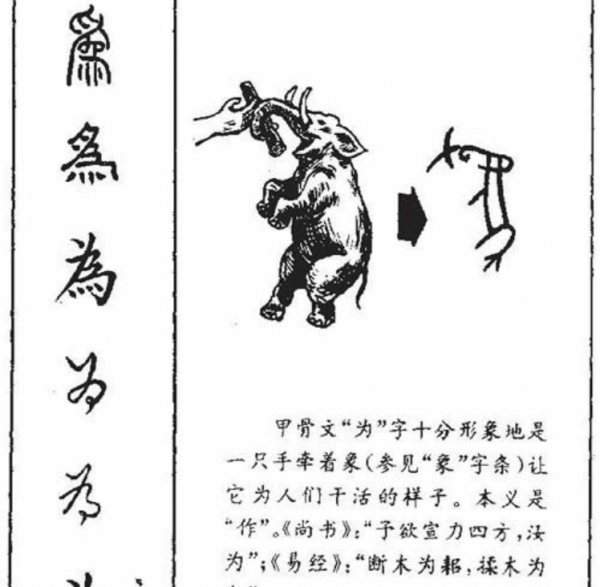 爲
爲
為
为
為
甲骨文“为”字十分形象地是
一只手牵着象(参见“象”字条)让
它为人们干活的样子。本义是
“作”。《尚书》:“子欲宣力四方,汝
为”;《易经》:“断木为耜,揉木为